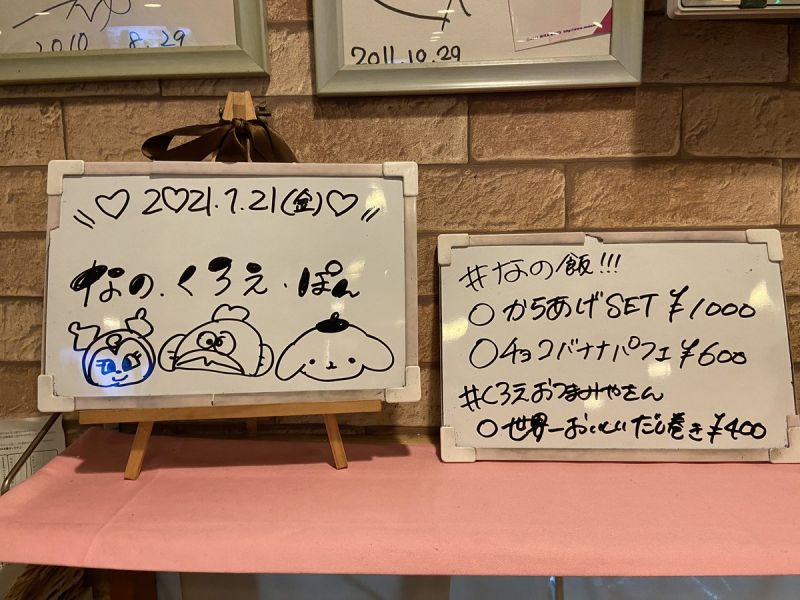 2010 8.29
2011.10.29
♡2♡21.7.21(金)♡
なの.くろえ.ぽん
#なの飯!!!
○からあげSET ¥1000
○チョコバナナパフェ¥600
#くろえおつまみやさん
○世界一おいしいだし巻き¥400